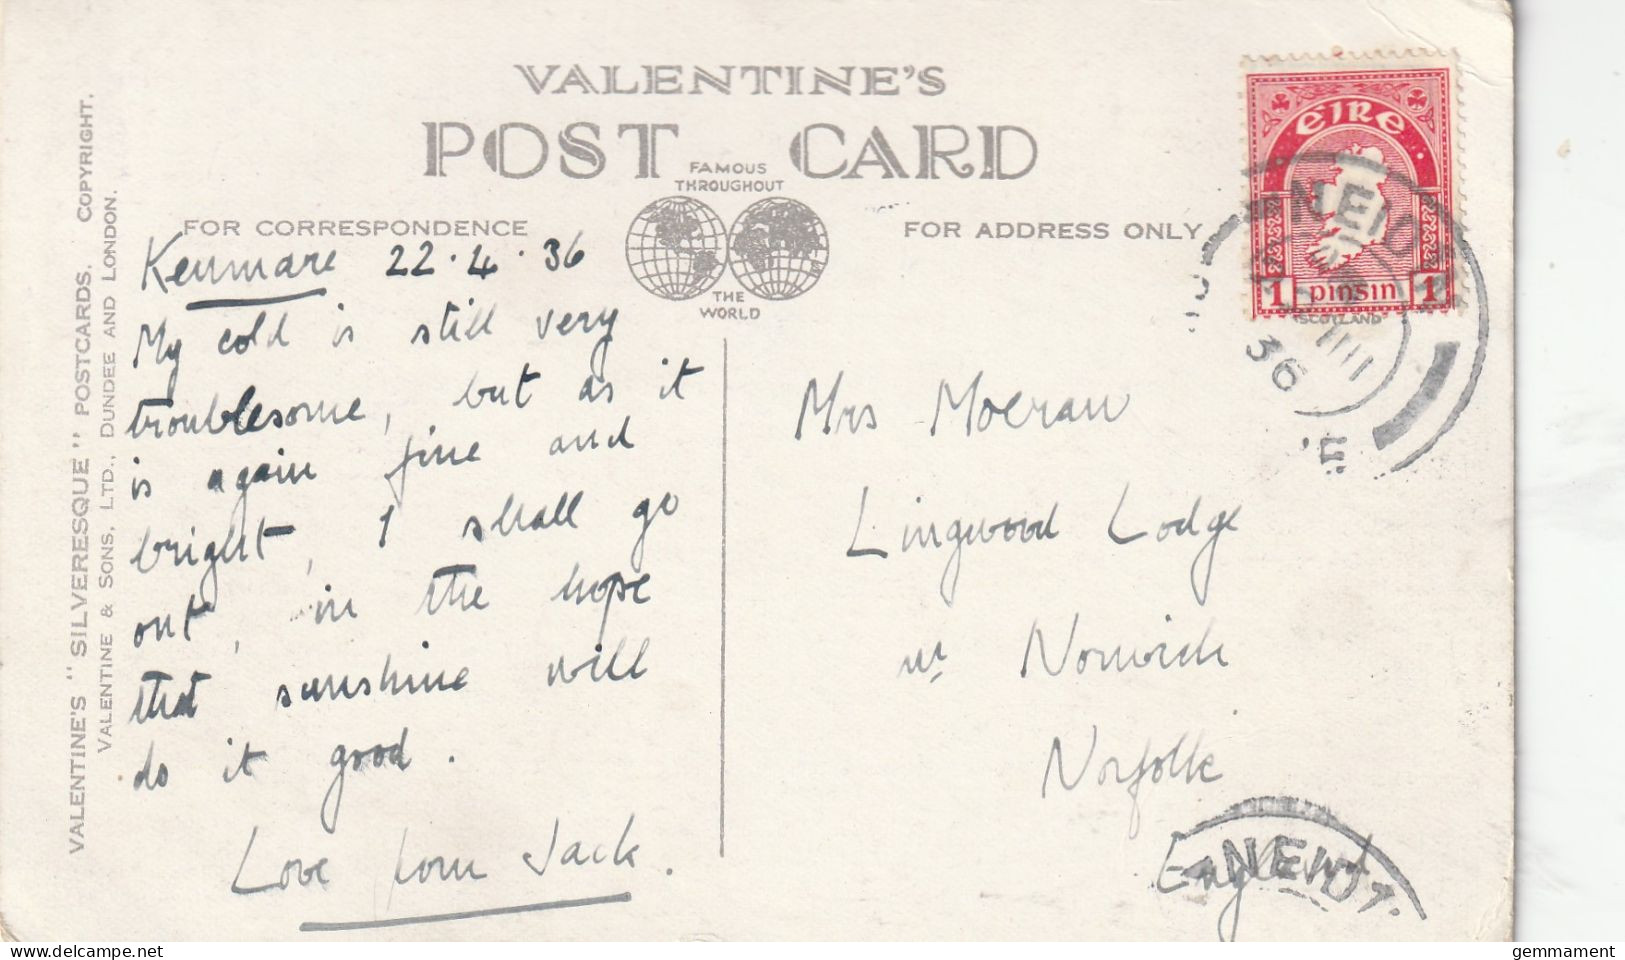 VALENTINE'S
POST CARD
FAMOUS
THROUGHOUT
THE
WORLD
FOR CORRESPONDENCE
FOR ADDRESS ONLY
VALENTINE'S "SILVERESQUE" POSTCARDS. COPYRIGHT.
VALENTINE & SONS, LTD., DUNDEE AND LONDON.
Kenmare 22.4.36
My cold is still very
troublesome, but as it
is again fine and
bright, I shall go
out, in the hope
that sunshine will
do it good.
Love from Jack.
Mrs Moeran
Lingwood Lodge
nr Norwich
Norfolk
England
ÉIRE
1 pinsin 1
SCOTLAND
NEID
36
NEID
gemmament